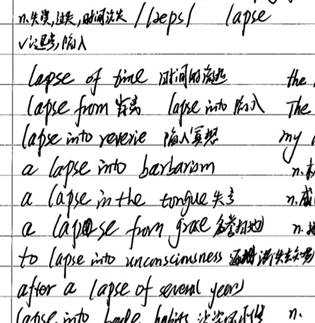 n.失误,过失,时间流失 /læps/ lapse
v.退步,陷入
lapse of time 时间的流逝 the
lapse from 背离 lapse into 陷入 The
lapse into reverie 陷入冥想 my
a lapse into barbarism n.
a lapse in the tongue 失言 n.
a lapse from grace 名誉扫地 n.
to lapse into unconsciousness
after a lapse of several years
lapse into bad habits n.